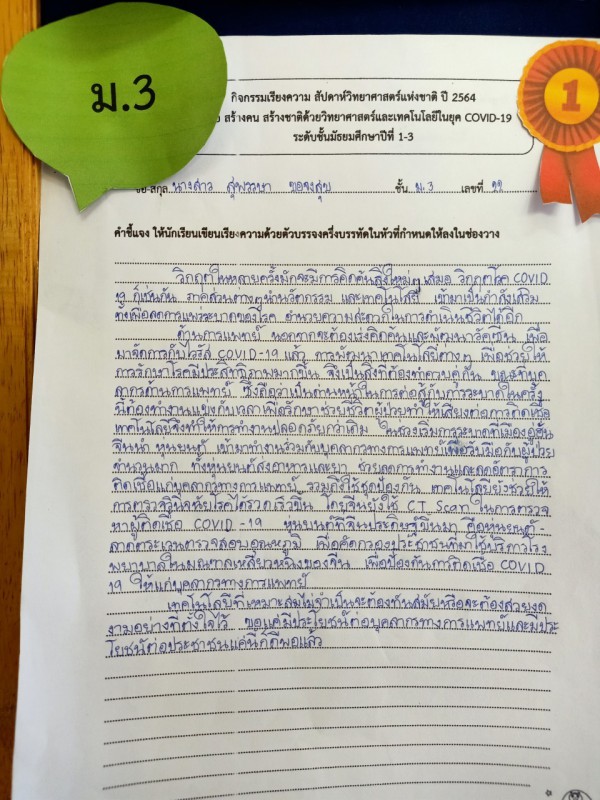 ม.3
1
กิจกรรมเรียงความ สัปดาห์วิทยาศาสตร์แห่งชาติ ปี 2564
สร้างคน สร้างชาติด้วยวิทยาศาสตร์และเทคโนโลยีในยุค COVID-19
ระดับชั้นมัธยมศึกษาปีที่ 1-3
ชื่อ-สกุล นางสาว สุพรรษา ของสุข ชั้น ม.3 เลขที่ 22
คำชี้แจง ให้นักเรียนเขียนเรียงความด้วยตัวบรรจงครึ่งบรรทัดในหัวที่กำหนดให้ลงในช่องวาง
วิกฤตในหลายครั้งมักจะมีการคิดค้นสิ่งใหม่ๆ เสมอ วิกฤตโรค COVID
19 ก็เช่นกัน ภาคส่วนต่างๆนำนวัตกรรม และเทคโนโลยี เข้ามาเป็นกำลังเสริม
เพื่อลดการแพร่ระบาดของโรค อำนวยความสะดวกในการดำเนินชีวิตได้อีก
ด้านการแพทย์ นอกจากจะต้องเร่งคิดค้นและพัฒนาวัคซีน เพื่อ
มาจัดการกับไวรัส COVID-19 แล้ว การพัฒนาเทคโนโลยีต่างๆ เพื่อช่วยให้
การรักษาโรคมีประสิทธิภาพมากขึ้น จึงเป็นสิ่งที่ต้องทำควบคู่กัน ขณะที่บุค
ลากรด้านการแพทย์ ซึ่งถือว่าเป็นด่านหน้าในการต่อสู้กับการระบาดในครั้ง
นี้ต้องทำงานแข่งกับเวลาเพื่อรักษาช่วยชีวิตผู้ป่วยทำให้เสี่ยงต่อการติดเชื้อ
เทคโนโลยีจึงทำให้การทำงานปลอดภัยกว่าเดิม ในช่วงเริ่มการระบาดที่เมืองอู่ฮั่น
จีนนำ หุ่นยนต์ เข้ามาทำงานร่วมกับบุคลากรทางการแพทย์เพื่อรับมือกับผู้ป่วย
จำนวนมาก ทั้งหุ่นยนต์ส่งอาหารและยา ช่วยลดการทำงานและลดอัตราการ
ติดเชื้อแก่บุคลากรทางการแพทย์ รวมถึงใช้ชุดป้องกัน เทคโนโลยียังช่วยให้
การตรวจวินิจฉัยโรคได้รวดเร็วขึ้น โดยจีนยังใช้ CT Scan ในการตรวจ
หาผู้ติดเชื้อ COVID-19 หุ่นยนต์ที่จีนประดิษฐ์ขึ้นมา คือหุ่นยนต์
ลาดตระเวนตรวจสอบอุณหภูมิ เพื่อคัดกรองประชาชนที่มาใช้บริการโรง
พยาบาลในมณฑลเหลียวหนิงของจีน เพื่อป้องกันการติดเชื้อ COVID
19 ให้แก่บุคลากรทางการแพทย์
เทคโนโลยีที่เหมาะสมไม่จำเป็นจะต้องทันสมัยหรือจะต้องสวยงด
งามอย่างที่ตั้งใจไว้ ขอแค่มีประโยชน์ต่อบุคลากรทางการแพทย์และมีประ
โยชน์ต่อประชาชนแค่นี้ก็ดีพอแล้ว